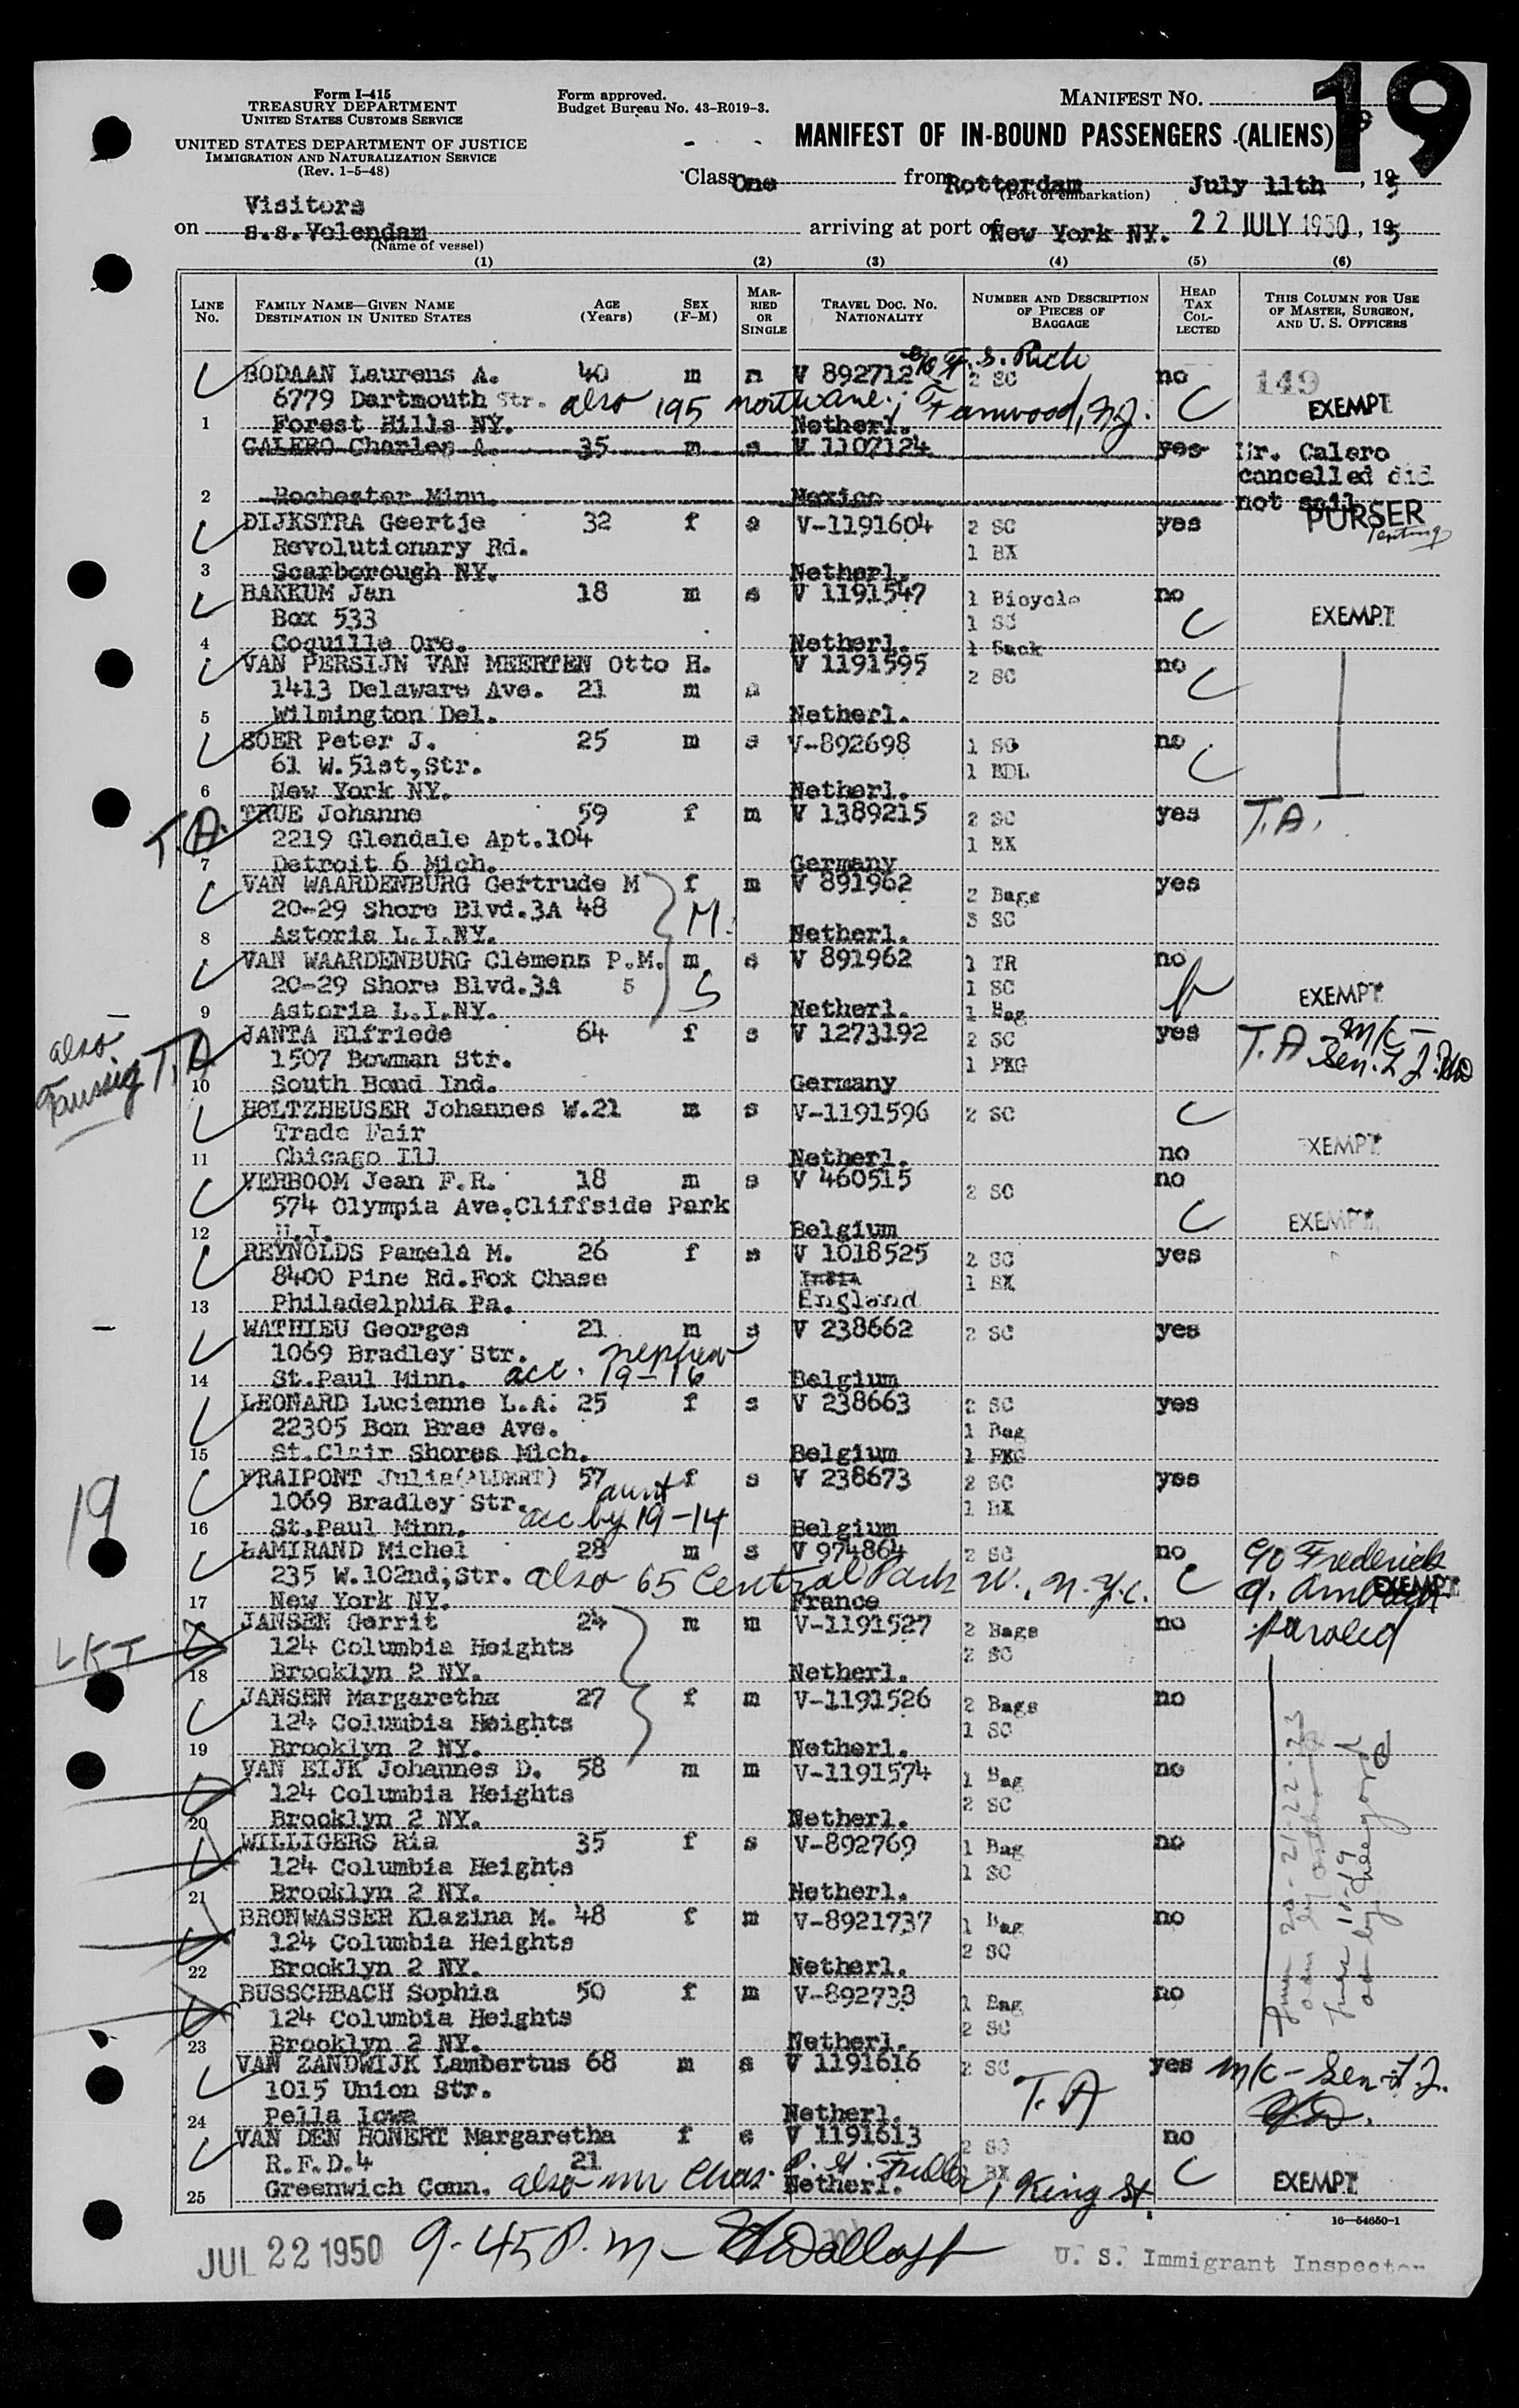 Form I-415
TREASURY DEPARTMENT
UNITED STATES CUSTOMS SERVICE
UNITED STATES DEPARTMENT OF JUSTICE
IMMIGRATION AND NATURALIZATION SERVICE
(Rev. 1-5-48)
Form approved.
Budget Bureau No. 43-R019-3.
MANIFEST NO. 19
MANIFEST OF IN-BOUND PASSENGERS (ALIENS)
Class One from Rotterdam July 11th, 195
(Port of embarkation)
Visitors
on s.s.Volendam arriving at port of New York NY. 22 JULY 1950, 195
(Name of vessel)
(1) (2) (3) (4) (5) (6)
LINE No. FAMILY NAME—GIVEN NAME DESTINATION IN UNITED STATES AGE (Years) SEX (F-M) MARRIED OR SINGLE TRAVEL DOC. NO. NATIONALITY NUMBER AND DESCRIPTION OF PIECES OF BAGGAGE HEAD TAX COLLECTED THIS COLUMN FOR USE OF MASTER, SURGEON, AND U. S. OFFICERS
BODAAN Laurens A. 40 m m V 892712 c/o F. S. Rich 2 SC no 149
6779 Dartmouth Str. also 195 North ave.; Fanwood, N.J. C EXEMPT
1 Forest Hills NY. Netherl.
CALERO Charles A. 35 m s V 1107124 yes Mr. Calero
cancelled did
2 Rochester Minn. Mexico not sail
DIJKSTRA Geertje 32 f s V-1191604 2 SC yes PURSER
Revolutionary Rd. 1 BX
3 Scarborough NY. Netherl.
BAKKUM Jan 18 m s V 1191547 1 Bicycle no
Box 533 1 SC C EXEMPT
4 Coquille Ore. Netherl. 1 Sack
VAN PERSIJN VAN MEERTEN Otto H. V 1191595 2 SC no
1413 Delaware Ave. 21 m s C
5 Wilmington Del. Netherl.
SOER Peter J. 25 m s V-892698 1 SC no
61 W.51st,Str. 1 BDL C
6 New York NY. Netherl.
T.A. TRUE Johanne 59 f m V 1389215 2 SC yes T.A.
2219 Glendale Apt.104 1 BX
7 Detroit 6 Mich. Germany
VAN WAARDENBURG Gertrude M f m V 891962 2 Bags yes
20-29 Shore Blvd.3A 48 M. 3 SC
8 Astoria L.I.NY. Netherl.
VAN WAARDENBURG Clemens P.M. m s V 891962 1 TR no
20-29 Shore Blvd.3A 5 S 1 SC EXEMPT
9 Astoria L.I.NY. Netherl. 1 Bag
also T.A JANTA Elfriede 64 f s V 1273192 2 SC yes T.A. M/C-
1507 Bowman Str. 1 PKG Sen.
10 South Bend Ind. Germany
HOLTZHEUSER Johannes W.21 m s V-1191596 2 SC C
Trade Fair EXEMPT
11 Chicago Ill Netherl. no
VERBOOM Jean F.R. 18 m s V 460515 2 SC no
574 Olympia Ave.Cliffside Park C EXEMPT
12 N.J. Belgium
REYNOLDS Pamela M. 26 f s V 1018525 2 SC yes
8400 Pine Rd.Fox Chase India 1 BX
13 Philadelphia Pa. England
WATHIEU Georges 21 m s V 238662 2 SC yes
1069 Bradley Str. nephew
14 St.Paul Minn. acc. 19-16 Belgium
LEONARD Lucienne L.A. 25 f s V 238663 2 SC yes
22305 Bon Brae Ave. 1 Bag
15 St.Clair Shores Mich. Belgium 1 PKG
19 FRAIPONT Julia(ALDERT) 57 f s V 238673 2 SC yes
1069 Bradley Str. aunt 1 BX
16 St.Paul Minn. acc by 19-14 Belgium
LAMIRAND Michel 28 m s V 974864 2 SC no c/o Frederick
235 W.102nd,Str. also 65 Central Park W., N.Y.C. C EXEMPT
17 New York NY. France
JANSEN Gerrit 24 m m V-1191527 2 Bags no paroled
LKT 124 Columbia Heights 2 SC
18 Brooklyn 2 NY. Netherl.
JANSEN Margaretha 27 f m V-1191526 2 Bags no
124 Columbia Heights 1 SC
19 Brooklyn 2 NY. Netherl.
VAN EIJK Johannes D. 58 m m V-1191574 1 Bag no
124 Columbia Heights 2 SC
20 Brooklyn 2 NY. Netherl.
WILLIGERS Ria 35 f s V-892769 1 Bag no
124 Columbia Heights 1 SC
21 Brooklyn 2 NY. Netherl.
BRONWASSER Klazina M. 48 f m V-8921737 1 Bag no
124 Columbia Heights 2 SC
22 Brooklyn 2 NY. Netherl.
BUSSCHBACH Sophia 50 f m V-892738 1 Bag no
124 Columbia Heights 2 SC
23 Brooklyn 2 NY. Netherl.
VAN ZANDWIJK Lambertus 68 m s V 1191616 2 SC yes M/C-Sen.
1015 Union Str. T.A
24 Pella Iowa Netherl.
VAN DEN HONERT Margaretha f s V 1191613 2 SC no
R.F.D.4 21 BX C EXEMPT
25 Greenwich Conn. also Chas. Fuller, King St Netherl.
16-54650-1
JUL 22 1950 9.45 P.m- U. S. Immigrant Inspector